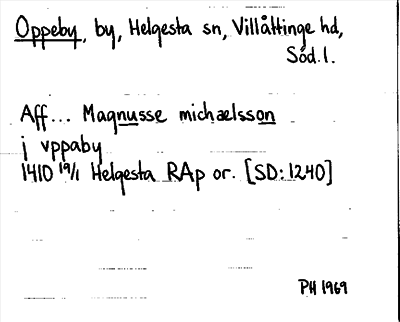 Oppeby, by, Helgesta sn, Villåttinge hd,
Söd. l.
Aff... Magnusse michaelsson
j vppaby
1410 19/1 Helgesta RAp or. [SD: 1240]
PH 1969